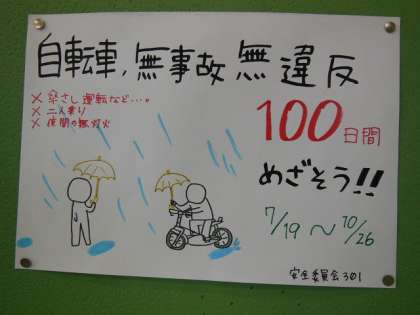 自転車,無事故無違反
✗ 傘さし運転など...。
✗ 二人乗り
✗ 夜間の無灯火
100日間
めざそう!!
7/19〜10/26
安全委員会301